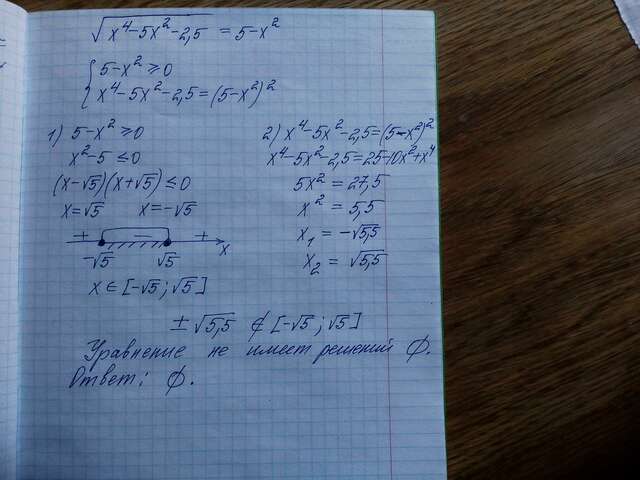 √(x⁴−5x²−2,5) = 5−x²
{ 5−x² ⩾ 0
x⁴−5x²−2,5=(5−x²)²
1) 5−x² ⩾ 0
x²−5 ⩽ 0
(x−√5)(x+√5) ⩽ 0
x=√5 x=−√5
+ − + x
−√5 √5
x ∈ [−√5; √5]
2) x⁴−5x²−2,5=(5−x²)²
x⁴−5x²−2,5=25−10x²+x⁴
5x² = 27,5
x² = 5,5
x₁ = −√5,5
x₂ = √5,5
± √5,5 ∉ [−√5; √5]
Уравнение не имеет решений ∅.
Ответ: ∅.